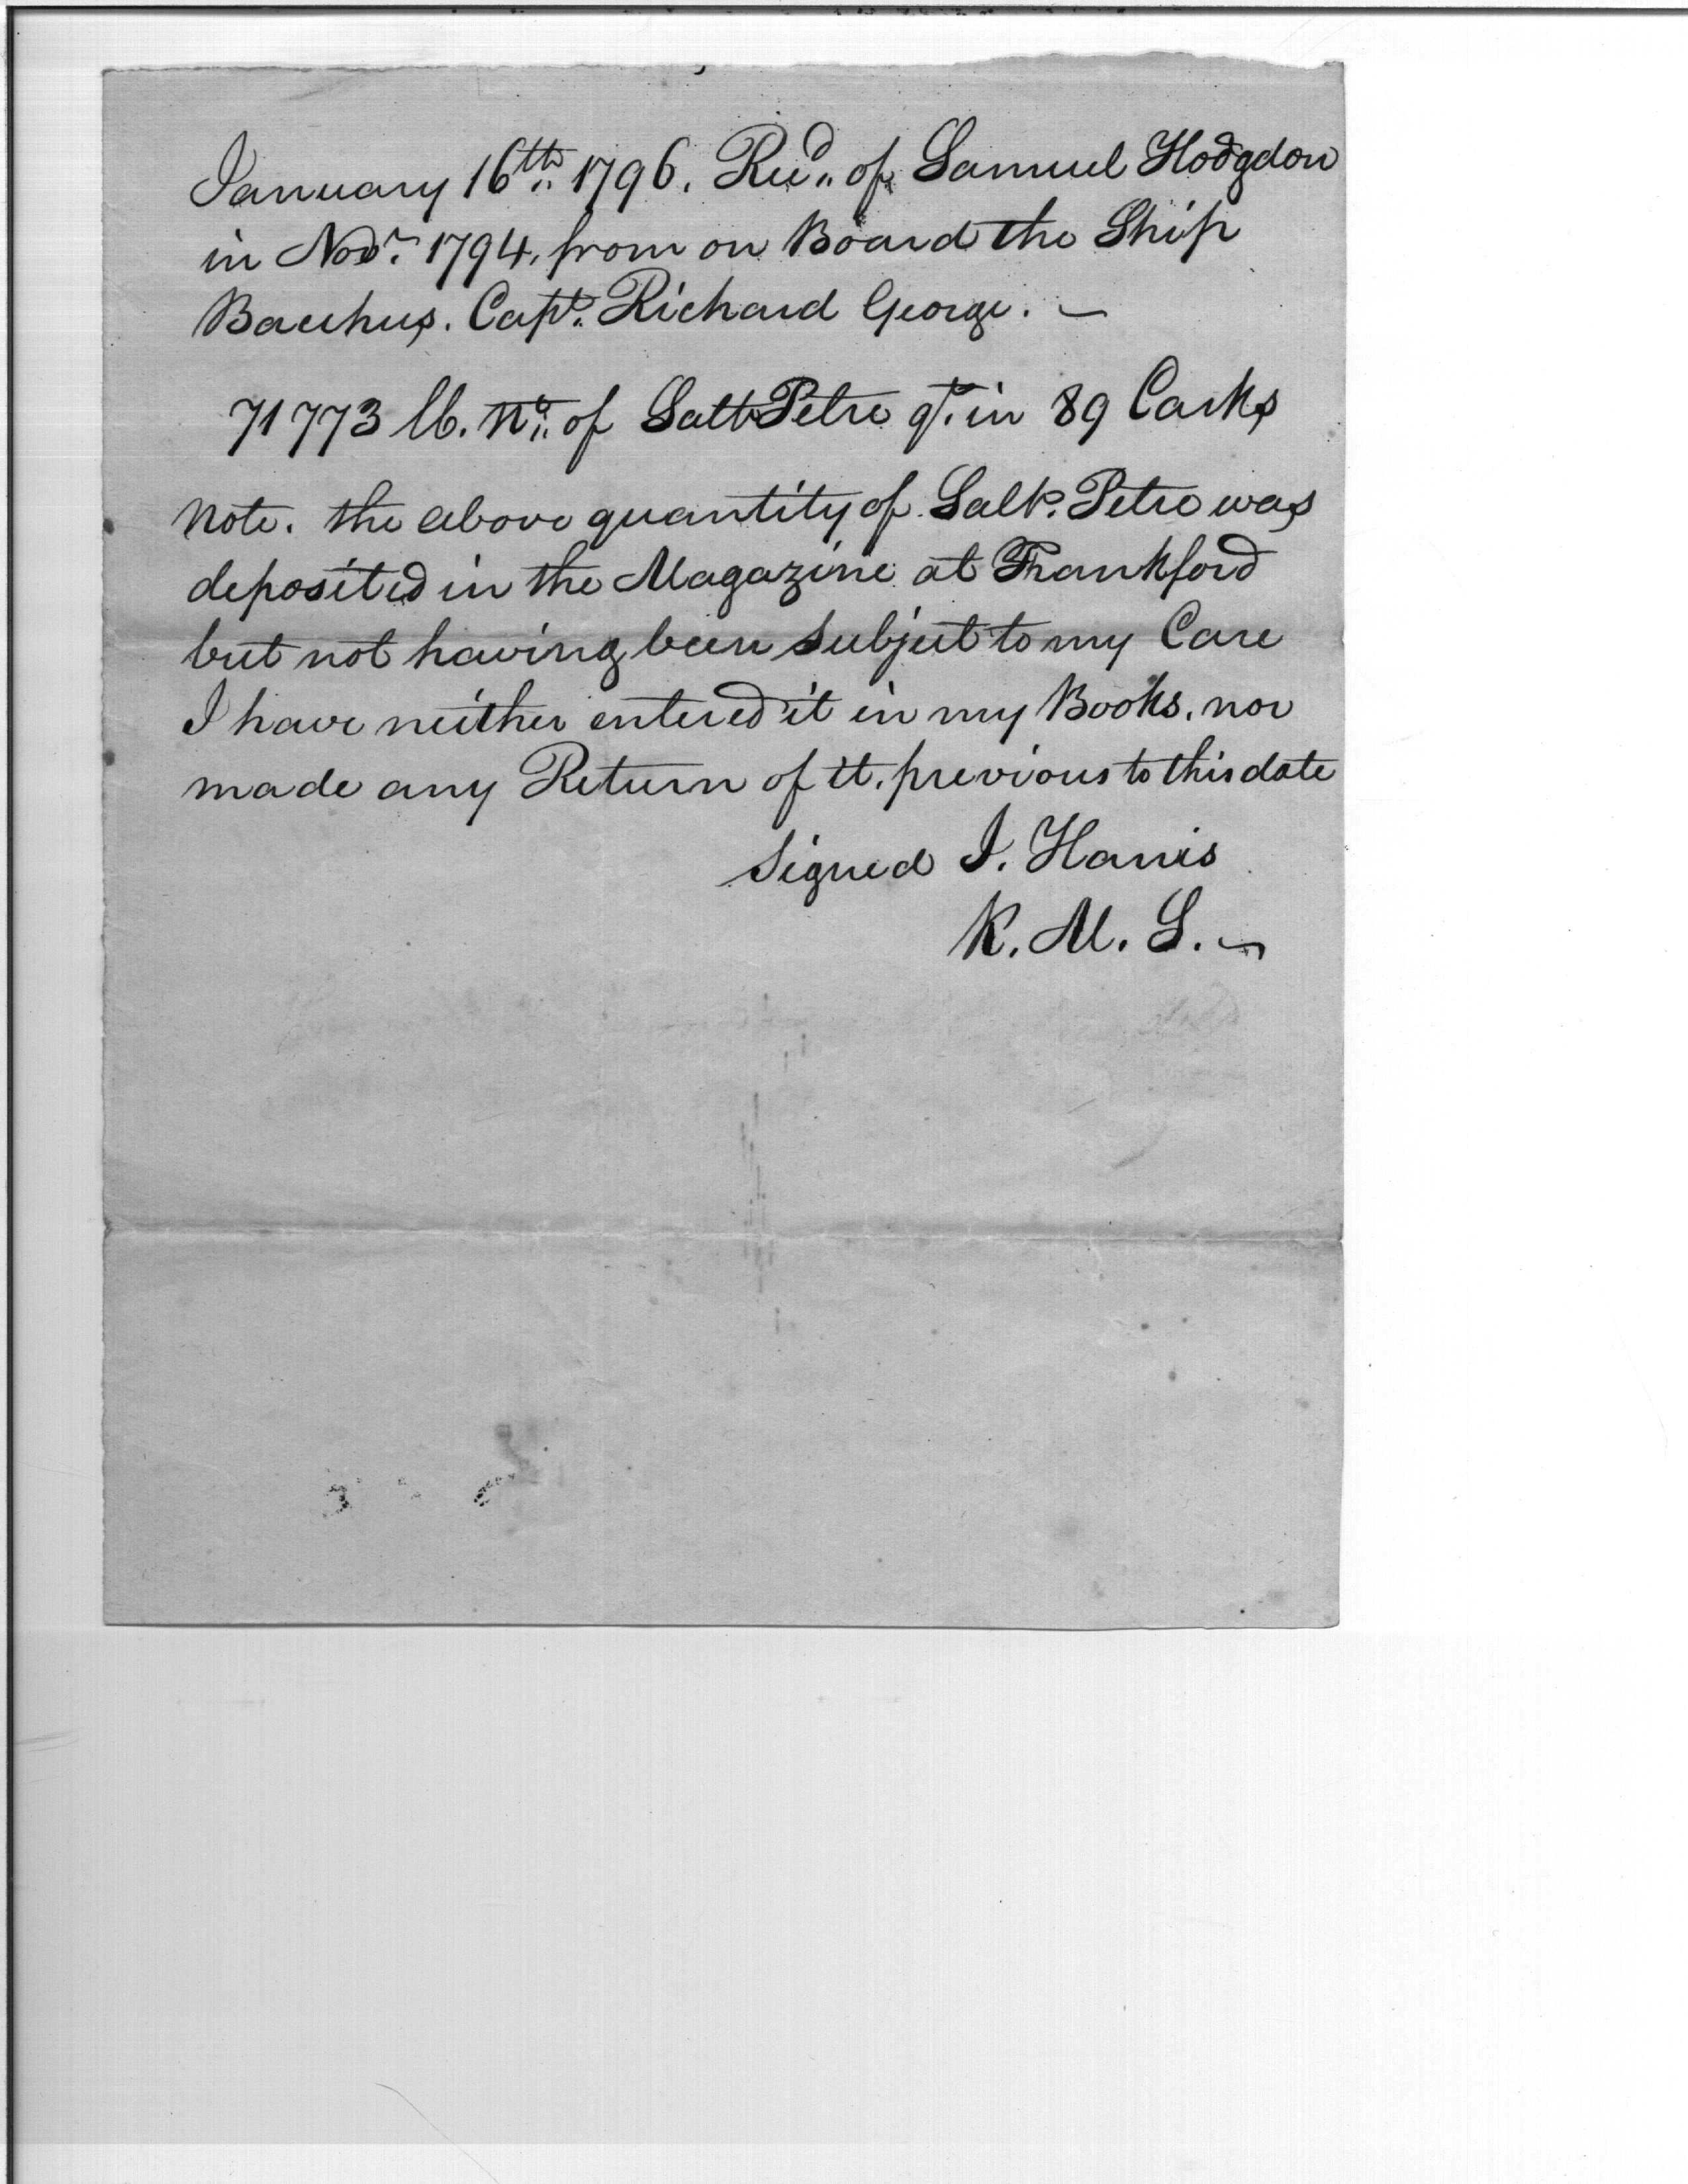 January 16th 1796. Recd of Samuel Hodgdon
in Novr 1794, from on Board the Ship
Bacchus. Capt. Richard George. —
71773 lb. Nt. of Salt Petre qt. in 89 Casks
Note. the above quantity of Salt Petre was
deposited in the Magazine at Frankford
but not having been subject to my Care
I have neither entered it in my Books, nor
made any Return of it, previous to this date
Signed J. Harris
K. M. S. —